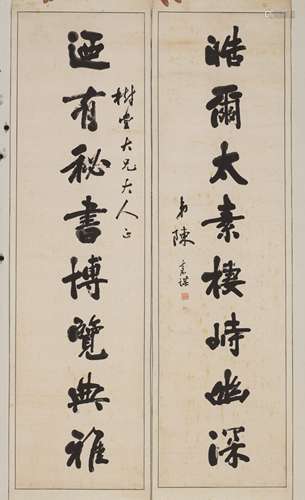 皓爾太素棲峙幽深
弟陳
樹大兄大人正
迺有秘書博覽典雅